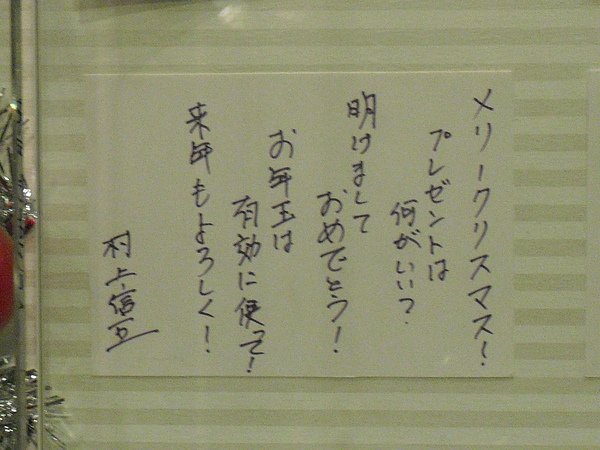 メリークリスマス!
プレゼントは
何がいい?
明けまして
おめでとう!
お年玉は
有効に使って!
来年もよろしく!
村上信五